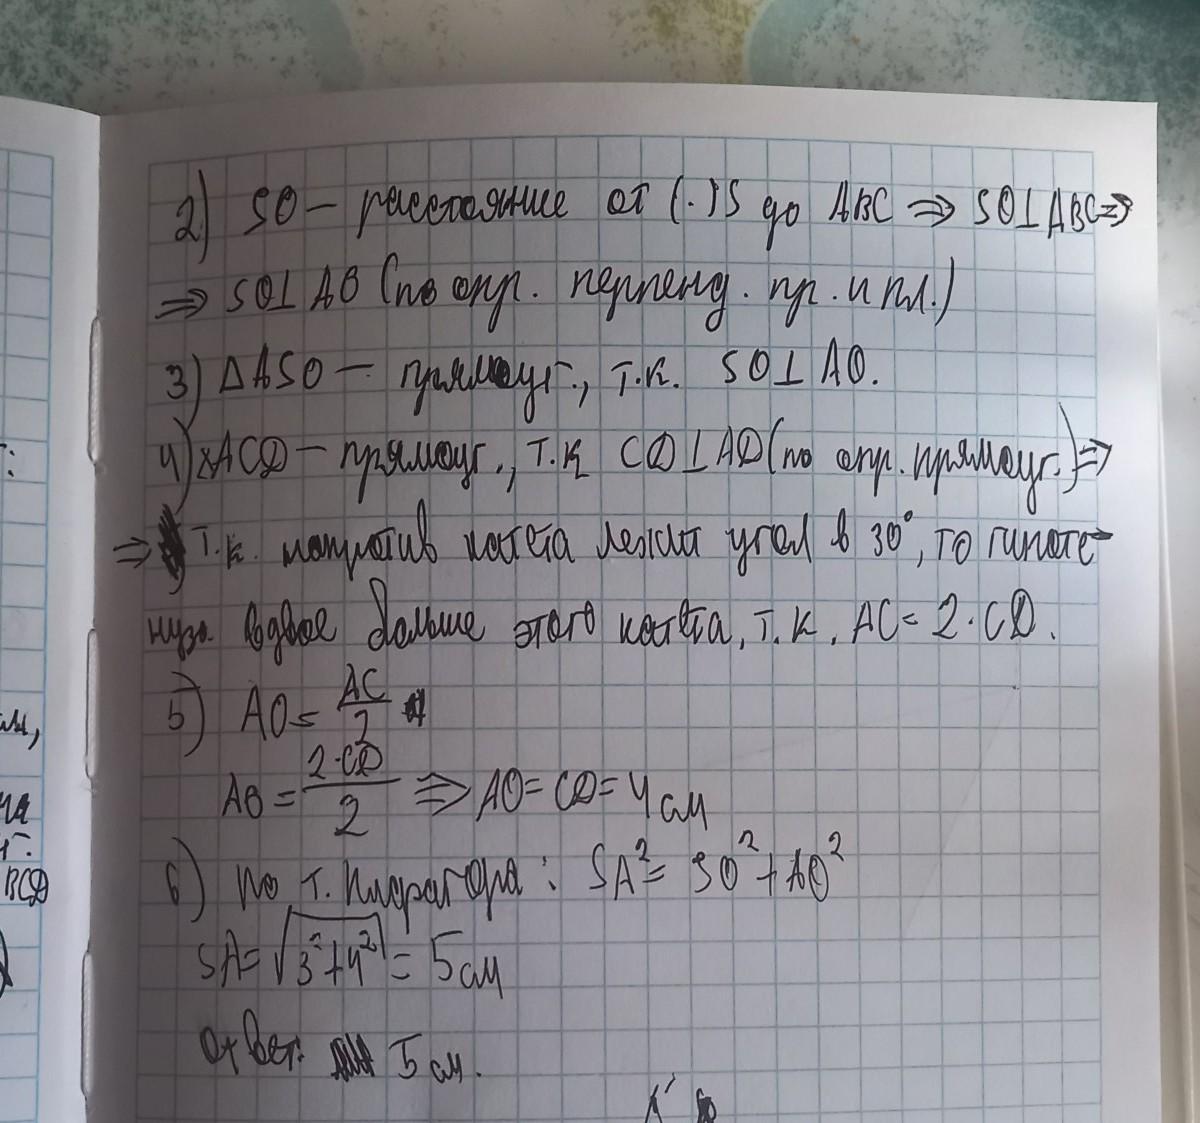 2) SO – расстояние от (·)S до ABC ⇒ SO⊥ABC⇒
⇒ SO⊥AB (по опр. перпенд. пр. и пл.)
3) ΔASO – прямоуг., т.к. SO⊥AO.
4) ΔACD – прямоуг., т.к CD⊥AD (по опр. прямоуг.)⇒
⇒ т.к. напротив катета лежит угол в 30°, то гипоте-
нуза вдвое больше этого катета, т.к. AC = 2·CD.
5) AO = AC/2
AO = 2·CD/2 ⇒ AO = CD = 4 см
6) По т. Пифагора: SA² = SO² + AO²
SA = √3²+4² = 5 см
Ответ: 5 см.
:
см,
BCD